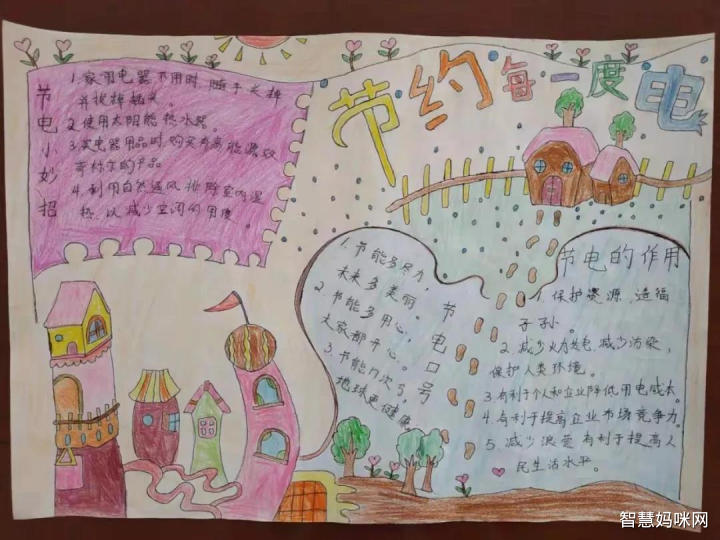 节约每一度电
节电小妙招
1.家用电器不用时,随手关掉
并拔掉插头。
2.使用太阳能热水器。
3.买电器用品时,购买有高能源效
率标尔的产品
4.利用自然通风排除室内湿
热,以减少空调的用度。
节电口号
1.节能多尽力,
未来多美丽。
2.节能多用心,
大家都开心。
3.节能
地球更健康
节电的作用
1.保护资源,造福
子孙。
2.减少火力发电,减少污染,
保护人类环境。
3.有利于个人和企业降低用电成本。
4.有利于提高企业市场竞争力。
5.减少浪费有利于提高人
民生活水平。
智慧妈咪网